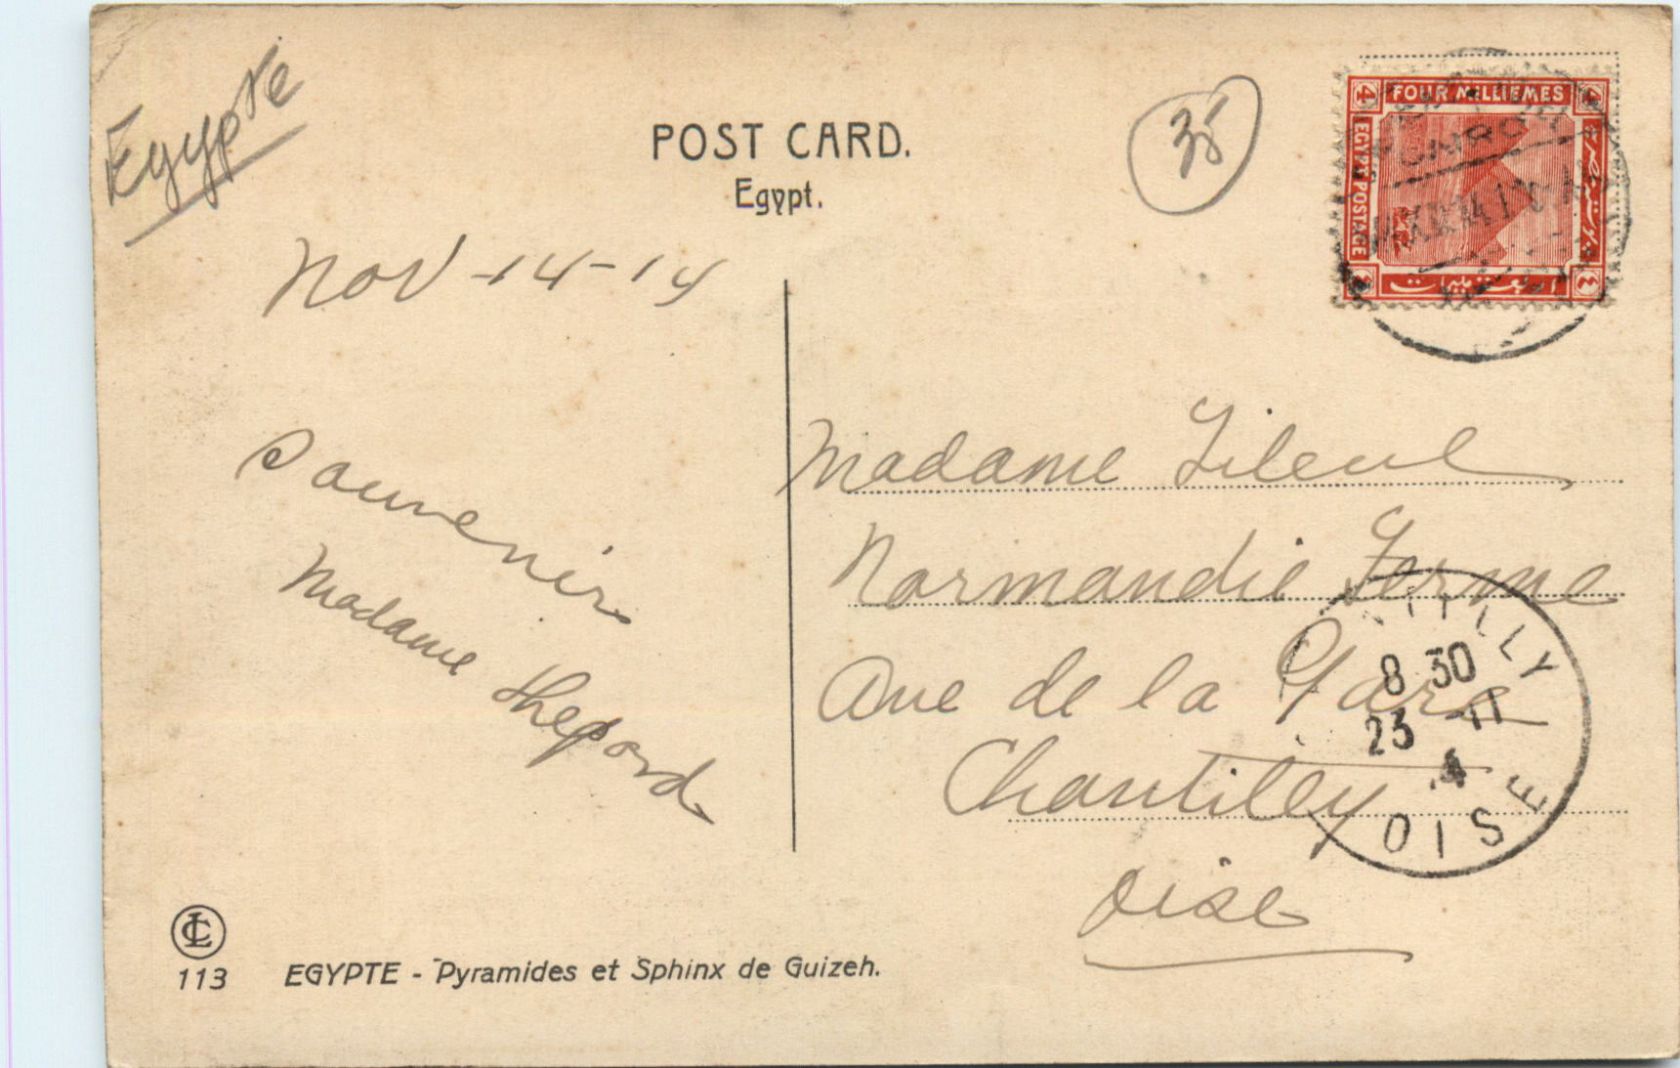 Egypte
POST CARD.
Egypt.
35
FOUR MILLIEMES
EGYPT POSTAGE
4
4
٤
٤
Nov-14-14
Souvenir
Madame Shepard
Madame Tileul
Normandie Ferme
Ave de la Gare
Chantilly
Oise
TILLY
8 30
23 -11
4
OISE
LC
113 EGYPTE - Pyramides et Sphinx de Guizeh.